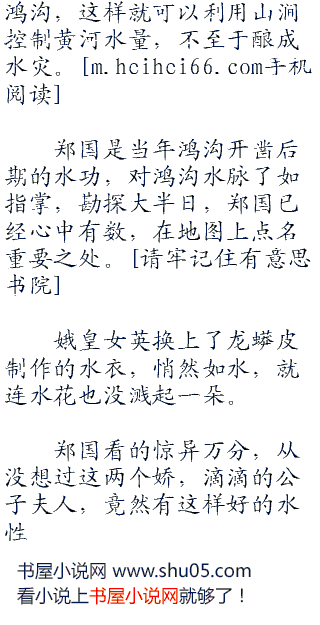 鸿沟，这样就可以利用山涧
控制黄河水量，不至于酿成
水灾。[m.hcihci66.com手机
阅读]
郑国是当年鸿沟开凿后
期的水功，对鸿沟水脉了如
指掌，勘探大半日，郑国已
经心中有数，在地图上点名
重要之处。[请牢记住有意思
书院]
娥皇女英换上了龙蟒皮
制作的水衣，悄然如水，就
连水花也没溅起一朵。
郑国看的惊异万分，从
没想过这两个娇，滴滴的公
子夫人，竟然有这样好的水
性
书屋小说网 www.shu05.com
看小说上书屋小说网就够了！